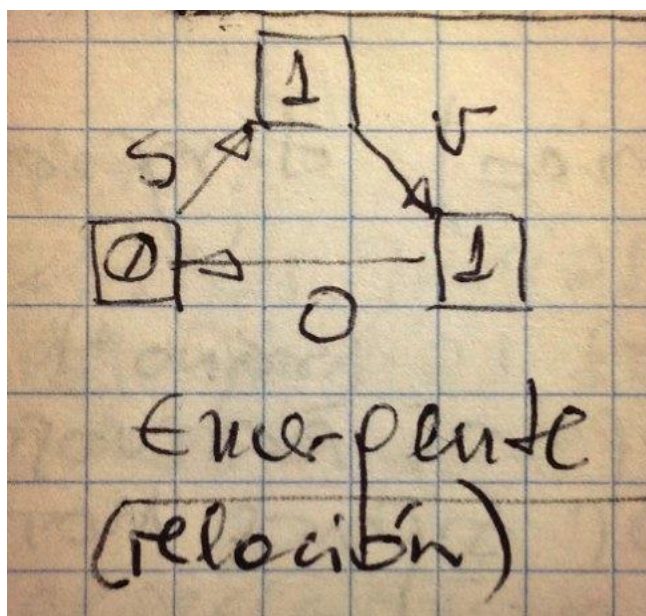 1
S V
0 1
O
Emergente
(relación)